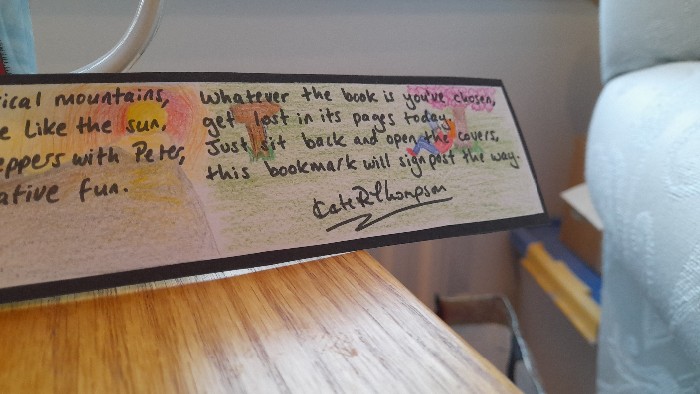 ical mountains,
e Like the sun,
eppers with Peter,
ative fun.
Whatever the book is you've chosen,
get lost in its pages today.
Just sit back and open the covers,
this bookmark will signpost the way.
Kate R Thompson